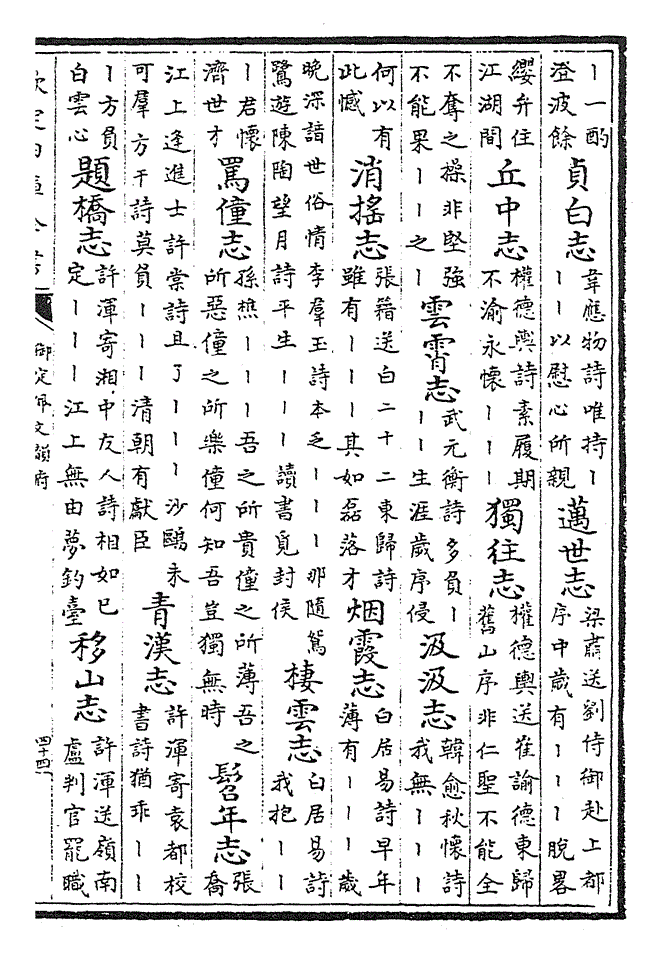 丨一酌
澄波餘
貞白志
韋應物詩唯持丨
丨丨以慰心所親
邁世志
梁肅送劉侍御赴上都
序中歲有丨丨丨脫畧
纓弁住
江湖間
丘中志
權德輿詩素履期
不渝永懷丨丨丨
獨往志
權德輿送崔諭德東歸
舊山序非仁聖不能全
不奪之操非堅強
不能果丨丨之丨
雲霄志
武元衡詩多負丨
丨丨生涯歲序侵
汲汲志
韓愈秋懷詩
我無丨丨丨
何以有
此憾
消搖志
張籍送白二十二東歸詩
雖有丨丨丨其如磊落才
烟霞志
白居易詩早年
薄有丨丨丨歲
晚深諳世俗情李羣玉詩本乏丨丨丨那隨鴛
鷺遊陳陶望月詩平生丨丨丨讀書覓封侯
棲雲志
白居易詩
我抱丨丨
丨君懷
濟世才
罵僮志
孫樵丨丨丨吾之所貴僮之所薄吾之
所惡僮之所樂僮何知吾豈獨無時
髫年志
張
喬
江上逢進士許棠詩且了丨丨丨沙鷗未
可羣方干詩莫負丨丨丨清朝有獻臣
青漢志
許渾寄袁都校
書詩猶乖丨丨
丨方員
白雲心
題橋志
許渾寄湘中友人詩相如已
定丨丨丨江上無由夢釣臺
移山志
許渾送嶺南
盧判官罷職
欽定四庫全書
御定佩文韻府
四十四